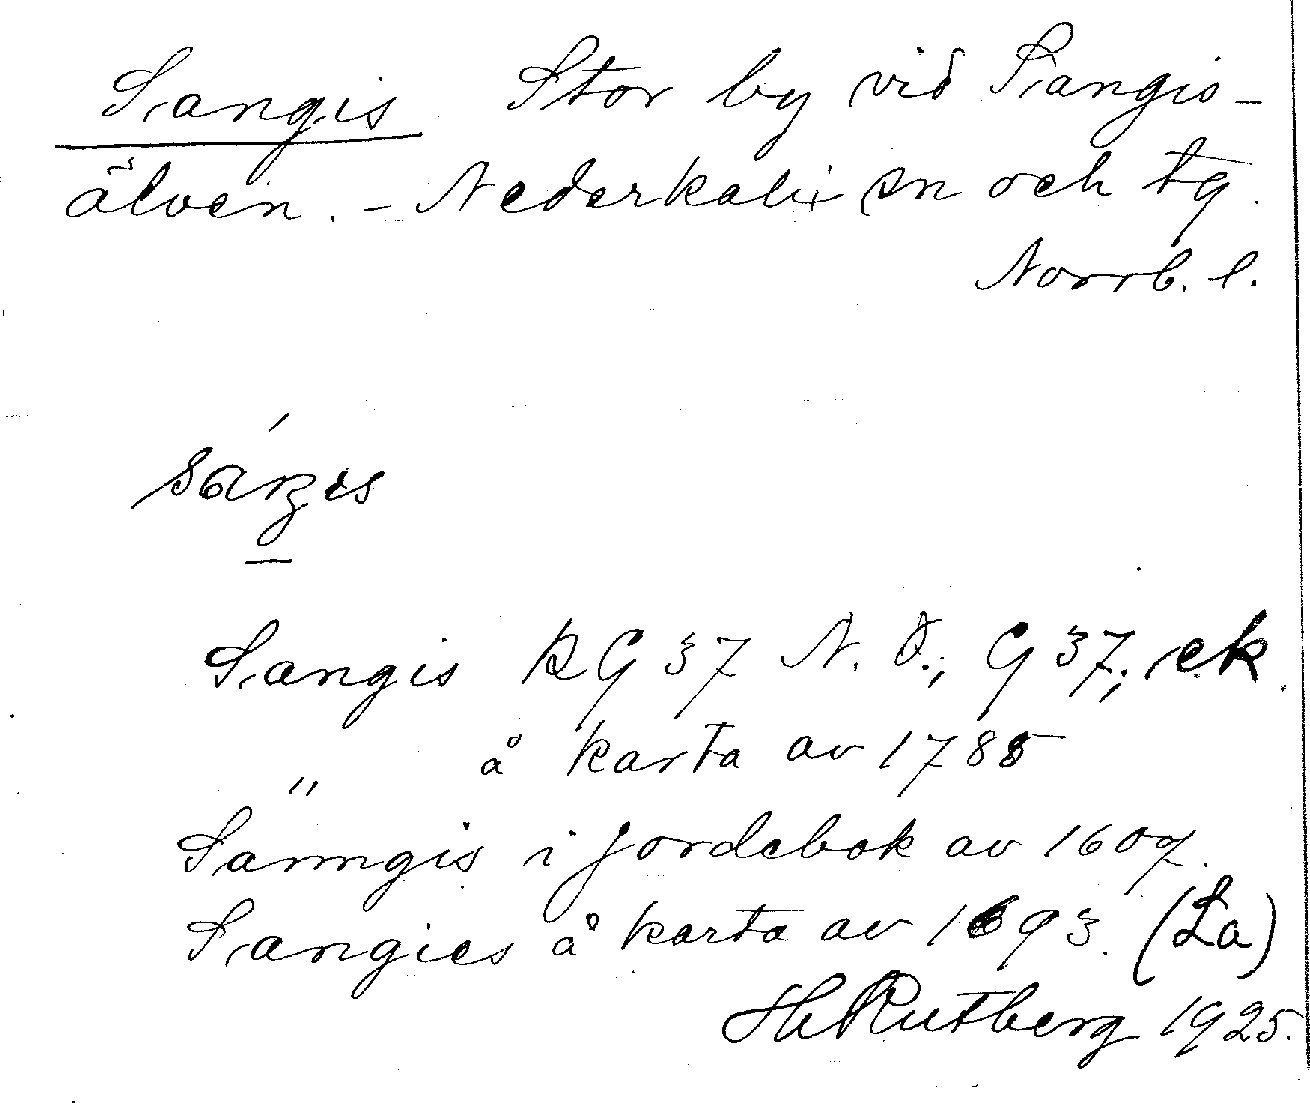 Sangis Stor by vid Sangis-
älven. - Nederkalix sn och tg.
Norrb. l.
Sangis RG 37 N. O.; G 37; ek
" å karta av 1785
Sanngis i jordebok av 1607.
Sangies å karta av 1693. (La)
H Rutberg 1925.